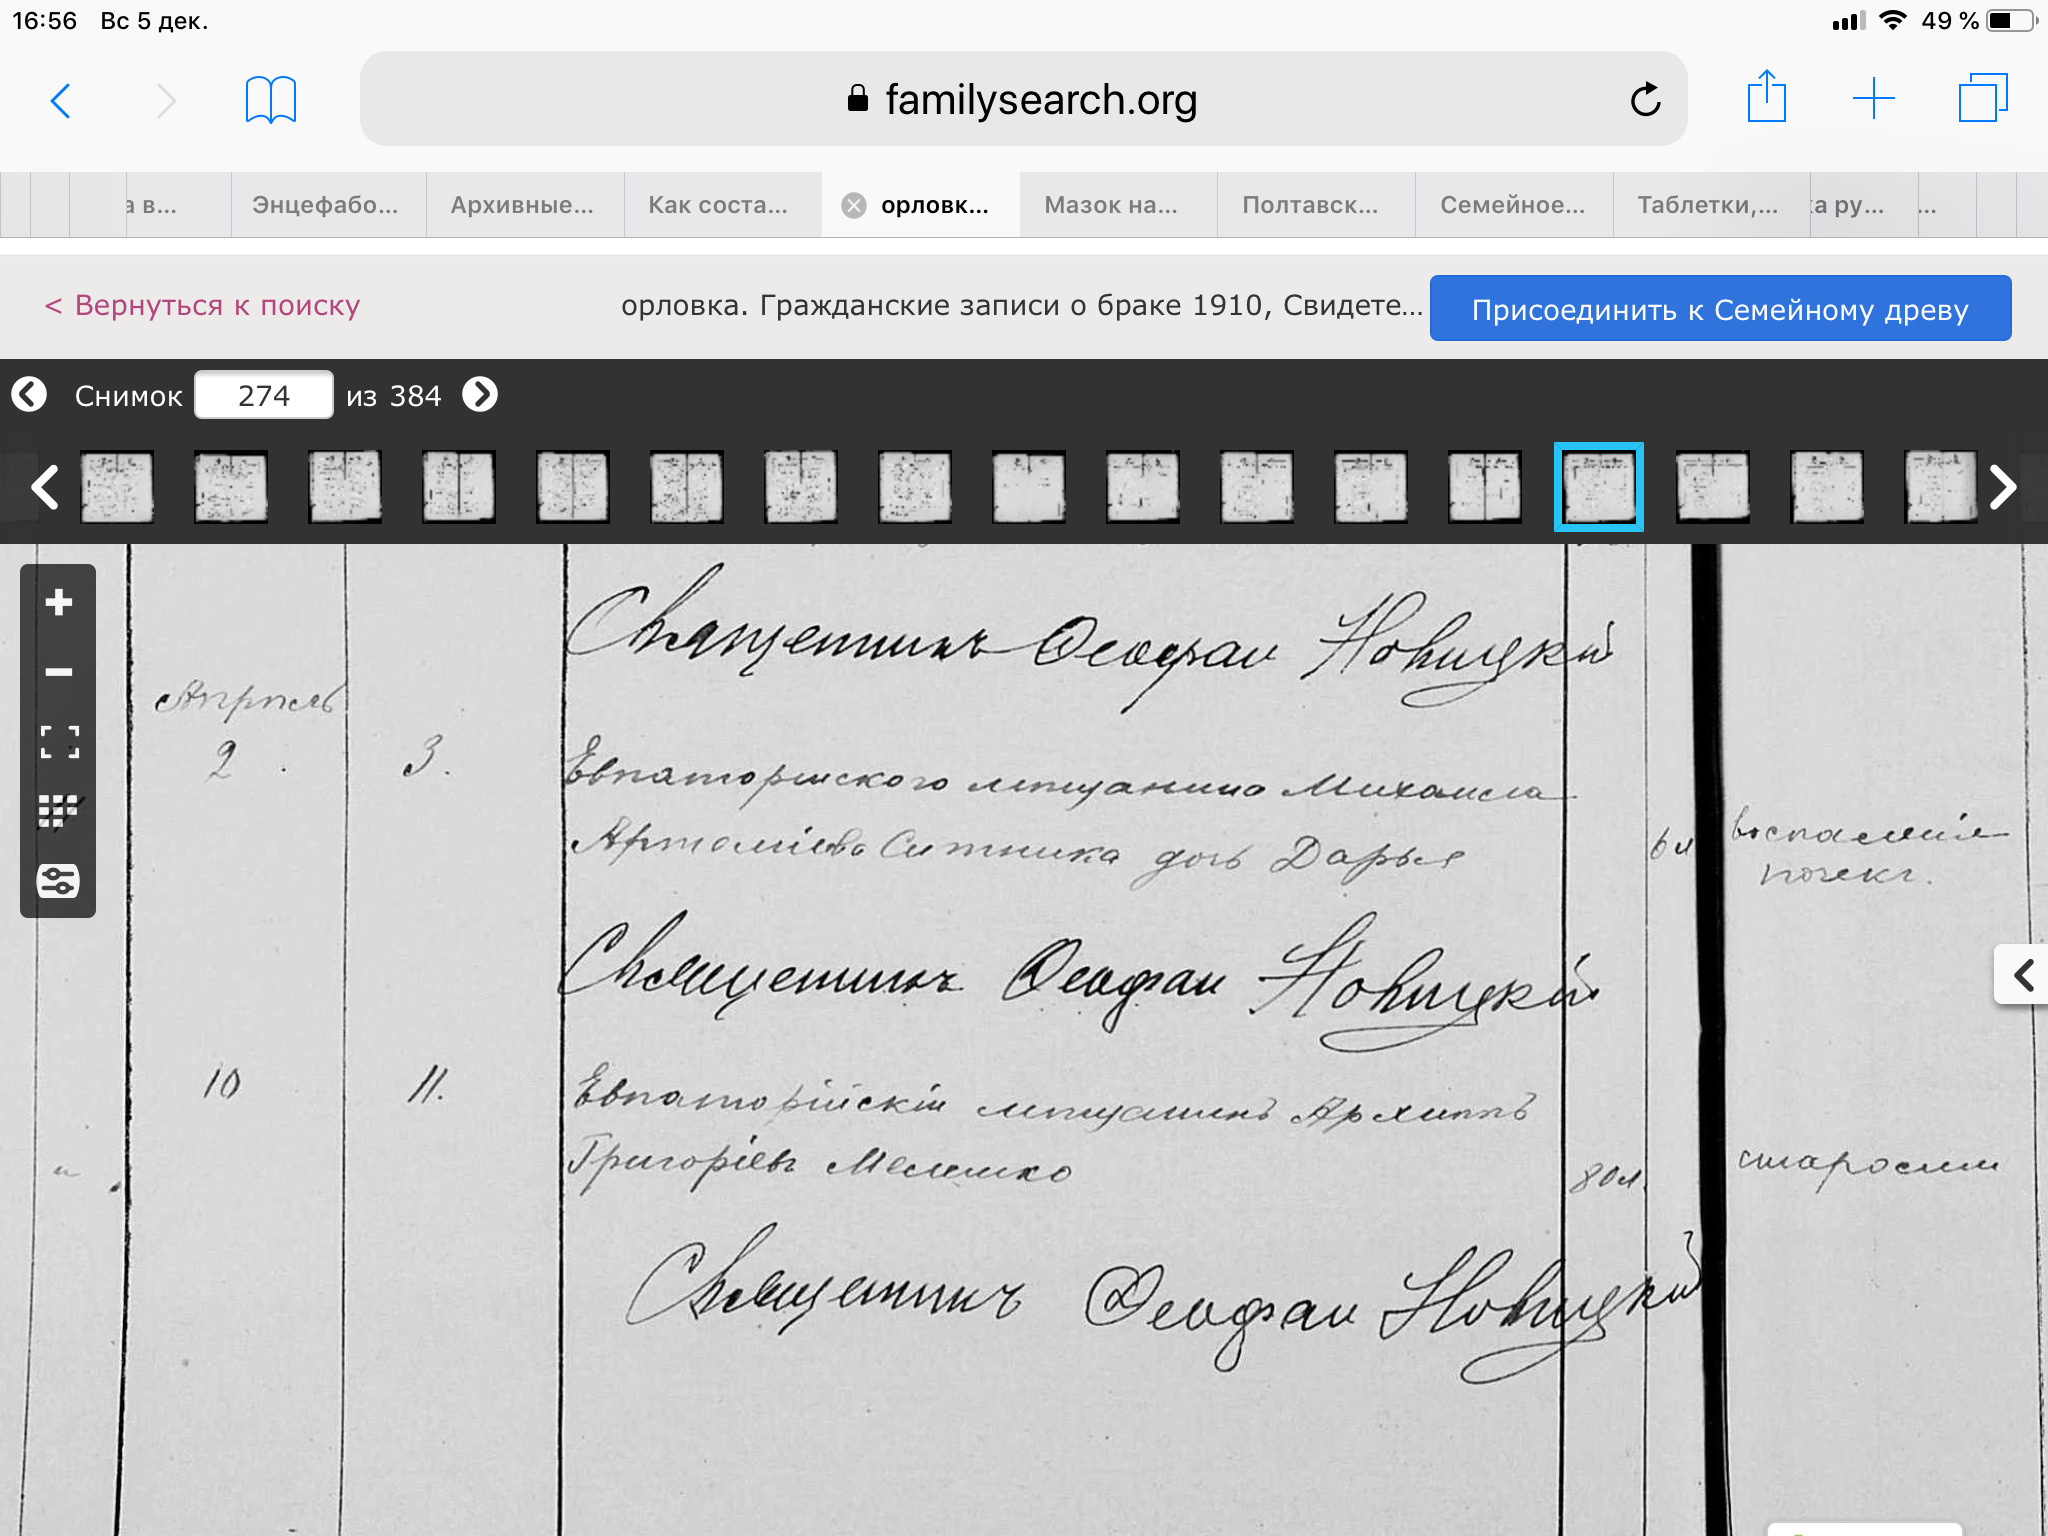 16:56 Вс 5 дек. 49 %
familysearch.org
а в... Энцефабо... Архивные... Как соста... орловк... Мазок на... Полтавск... Семейное... Таблетки,... ка ру... ...
< Вернуться к поиску орловка. Гражданские записи о браке 1910, Свидете... Присоединить к Семейному древу
Снимок 274 из 384
Священникъ Феофан Новицкій
Апрѣль
2 3. Евпаторійского мѣщанина Михаила
Артеміева Ситника дочь Дарья 6 л воспаленіе
почекъ.
Священникъ Феофан Новицкій
10 11. Евпаторійскій мѣщанинъ Архиппъ
Григоріевъ Мелешко 80 л. старости
Священникъ Феофан Новицкій